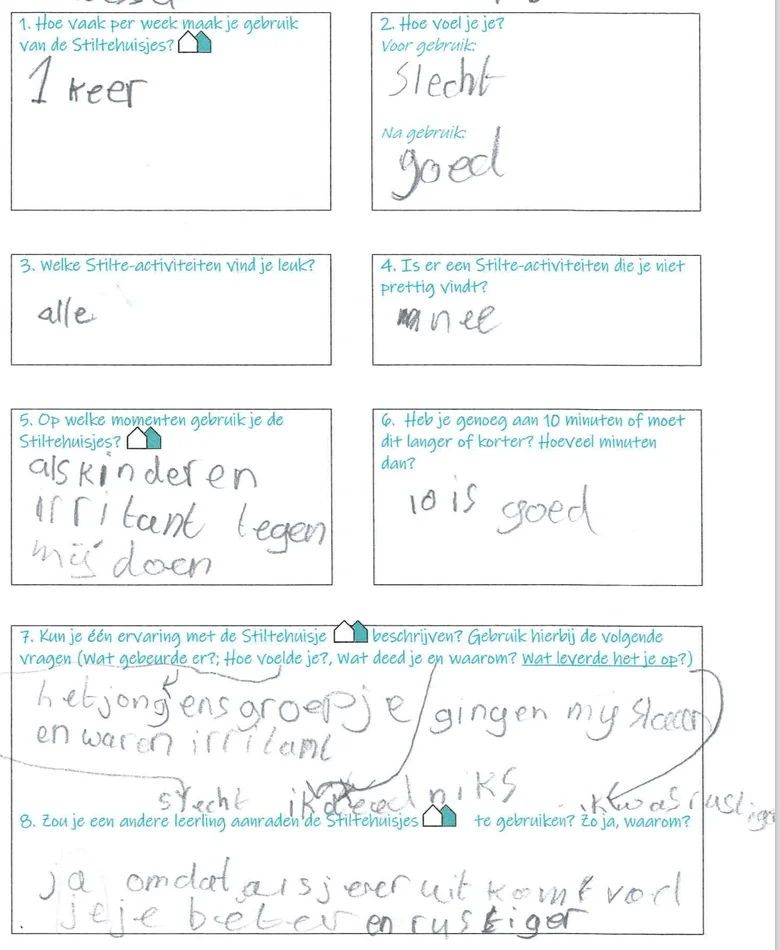 1. Hoe vaak per week maak je gebruik
van de Stiltehuisjes?
1 keer
2. Hoe voel je je?
Voor gebruik:
slecht
Na gebruik:
goed
3. Welke Stilte-activiteiten vind je leuk?
alle
4. Is er een Stilte-activiteiten die je niet
prettig vindt?
nee
5. Op welke momenten gebruik je de
Stiltehuisjes?
als kinderen
irritant tegen
mij doen
6. Heb je genoeg aan 10 minuten of moet
dit langer of korter? Hoeveel minuten
dan?
10 is goed
7. Kun je één ervaring met de Stiltehuisje beschrijven? Gebruik hierbij de volgende
vragen (Wat gebeurde er?; Hoe voelde je?, Wat deed je en waarom? Wat leverde het je op?)
het jongens groepje gingen mij slaan
en waren irritant
slecht ik deed niks ik was rustig
8. Zou je een andere leerling aanraden de Stiltehuisjes te gebruiken? Zo ja, waarom?
ja omdat als je er uit komt voel
je je beter en rustiger